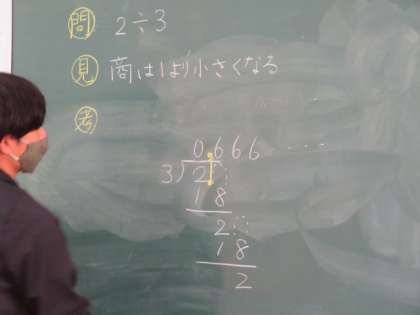 問 2÷3
見 商は1より小さくなる
考
0.666 ...
3)2
18
2
18
2